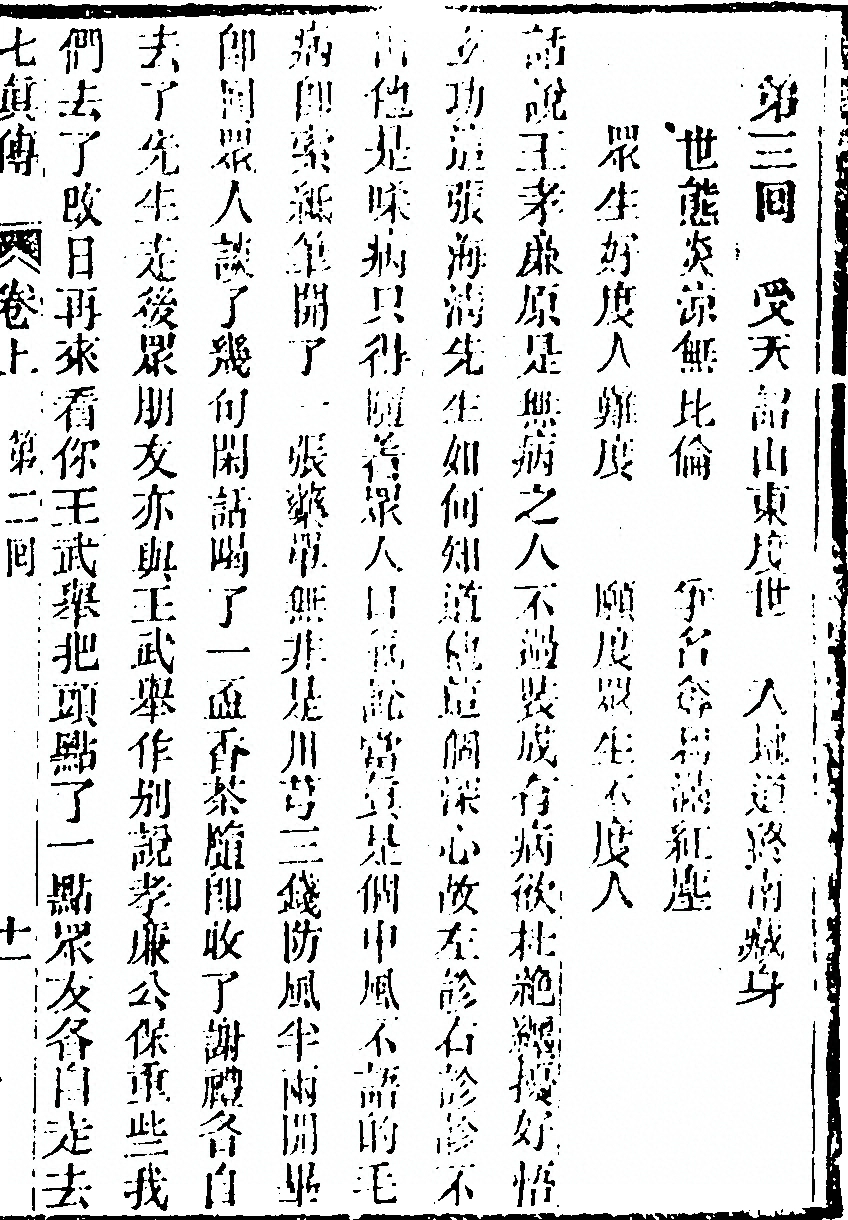 第三回　受天詔山東度世　入地道終南藏身
世態炎涼無比倫　爭名奪利滿紅塵
眾生好度人難度　願度眾生不度人
話說王孝廉原是無病之人不過裝成有病欲杜絕纏擾好悟
玄功這張海清先生如何知道他這個深心故左診右診診不
出他是味病只得隨着眾人口氣說當真是個中風不語的毛
病即索紙筆開了一張藥單無非是川芎三錢防風半兩開畢
即同眾人談了幾句閑話喝了一盃香茶隨即收了謝禮各自
去了先生走後眾朋友亦與王武舉作别說孝廉公保重些我
們去了改日再來看你王武舉把頭點了一點眾友各自走去
七眞傳　卷上　第二回　十一